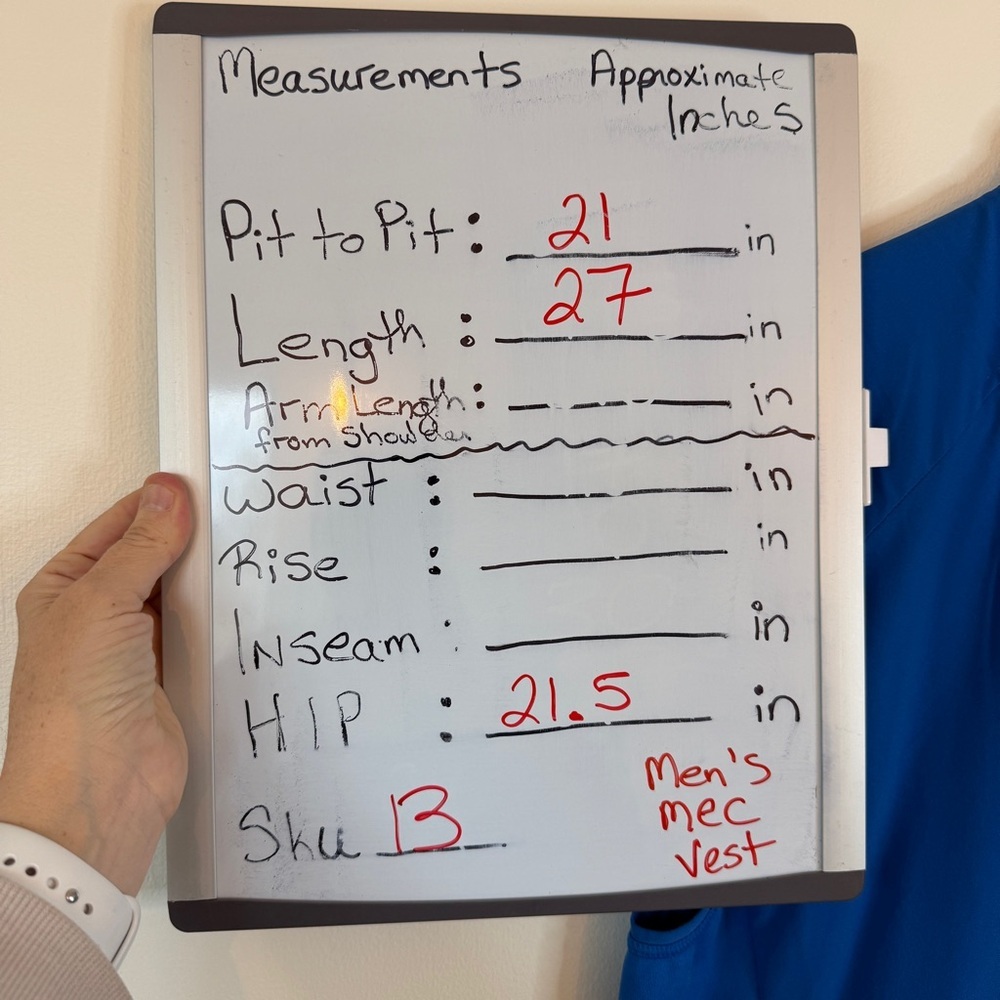 Measurements Approximate
Inches
Pit to Pit: 21 in
Length : 27 in
Arm Length: in
from Shoulder
Waist : in
Rise : in
Inseam : in
HIP : 21.5 in
Sku 13
Men's
mec
vest